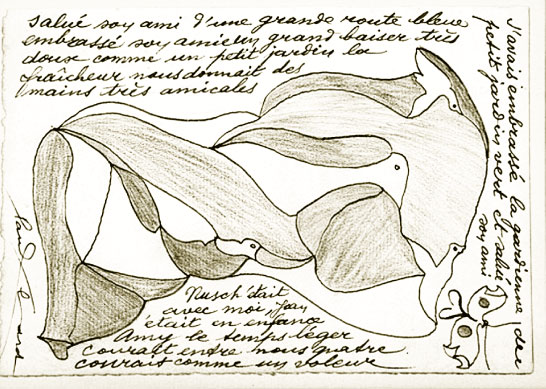 Salué soy ami d'une grande route bleue
embrassé soy amie un grand baiser très
doux comme un petit jardin la
fraîcheur nous donnait des
mains très amicales
J'avais embrassé la gardienne du
petit jardin vert et salué
soy ami
Nusch était
avec moi,
était en enfance
Amy le temps léger
courait entre nous quatre
courait comme un voleur
Paul Eluard